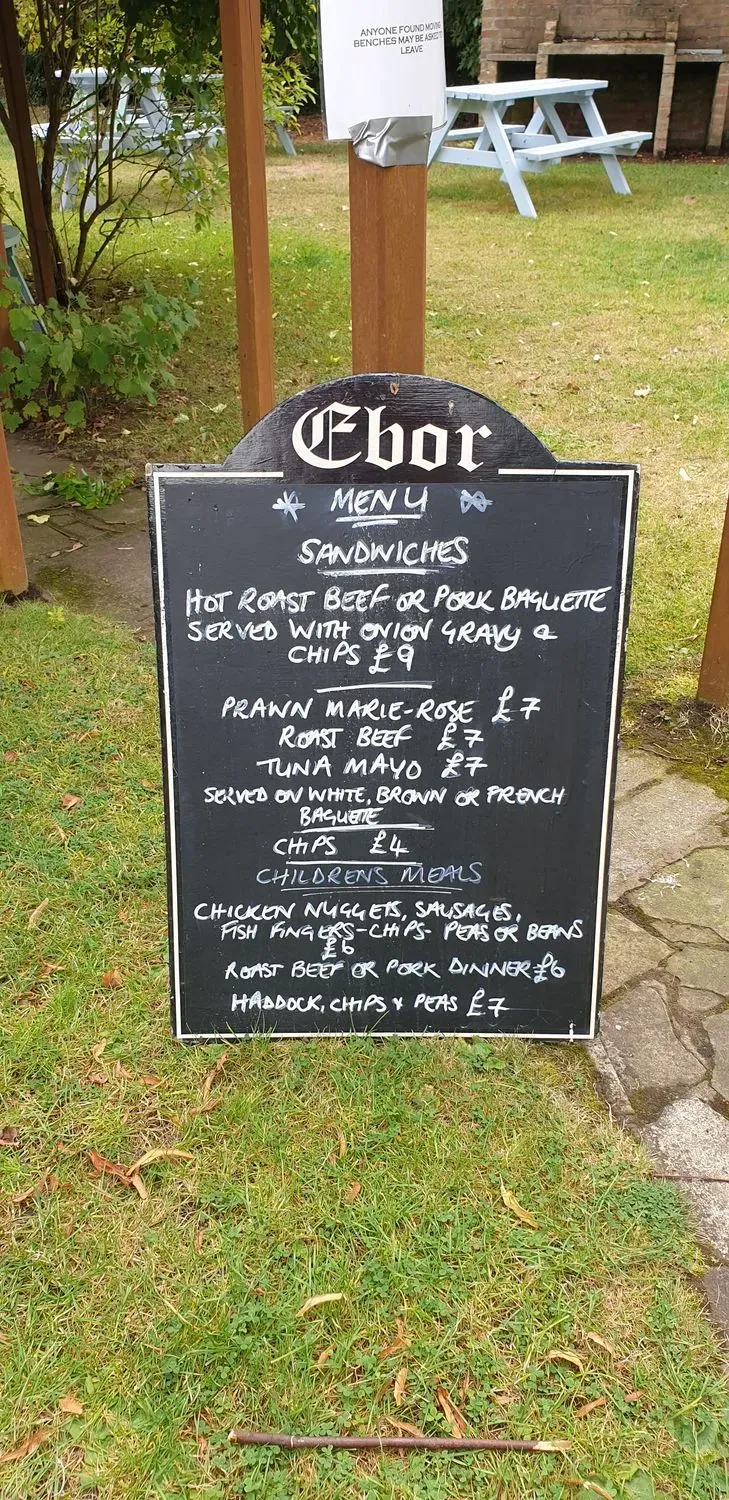 ANYONE FOUND MOVING
BENCHES MAY BE ASKED TO
LEAVE
Ebor
MENU
SANDWICHES
HOT ROAST BEEF OR PORK BAGUETTE
SERVED WITH ONION GRAVY &
CHIPS £9
PRAWN MARIE-ROSE £7
ROAST BEEF £7
TUNA MAYO £7
SERVED ON WHITE, BROWN OR FRENCH
BAGUETTE
CHIPS £4
CHILDRENS MEALS
CHICKEN NUGGETS, SAUSAGES,
FISH FINGERS-CHIPS- PEAS OR BEANS
£6
ROAST BEEF OR PORK DINNER £6
HADDOCK, CHIPS & PEAS £7